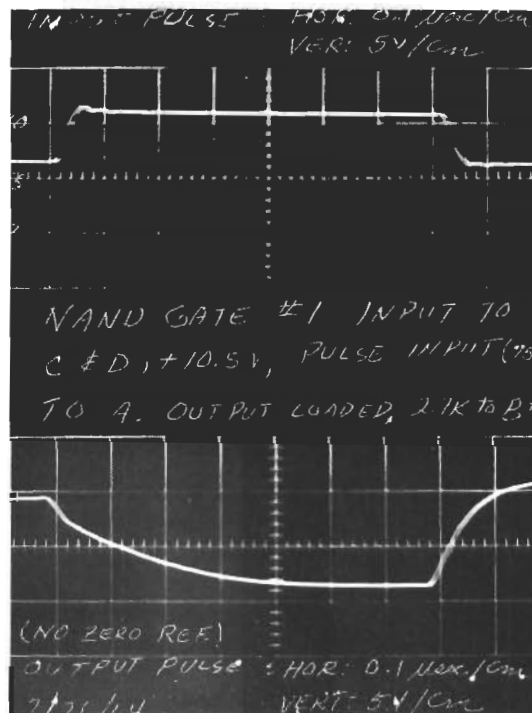 INPUT PULSE : HOR: 0.1 μsec/cm
VER: 5V/cm
NAND GATE #1 INPUT TO
C & D, +10.5V, PULSE INPUT
TO A. OUTPUT LOADED, 2.7K to B+
(NO ZERO REF)
OUTPUT PULSE : HOR: 0.1 μsec./cm
VERT: 5V/cm